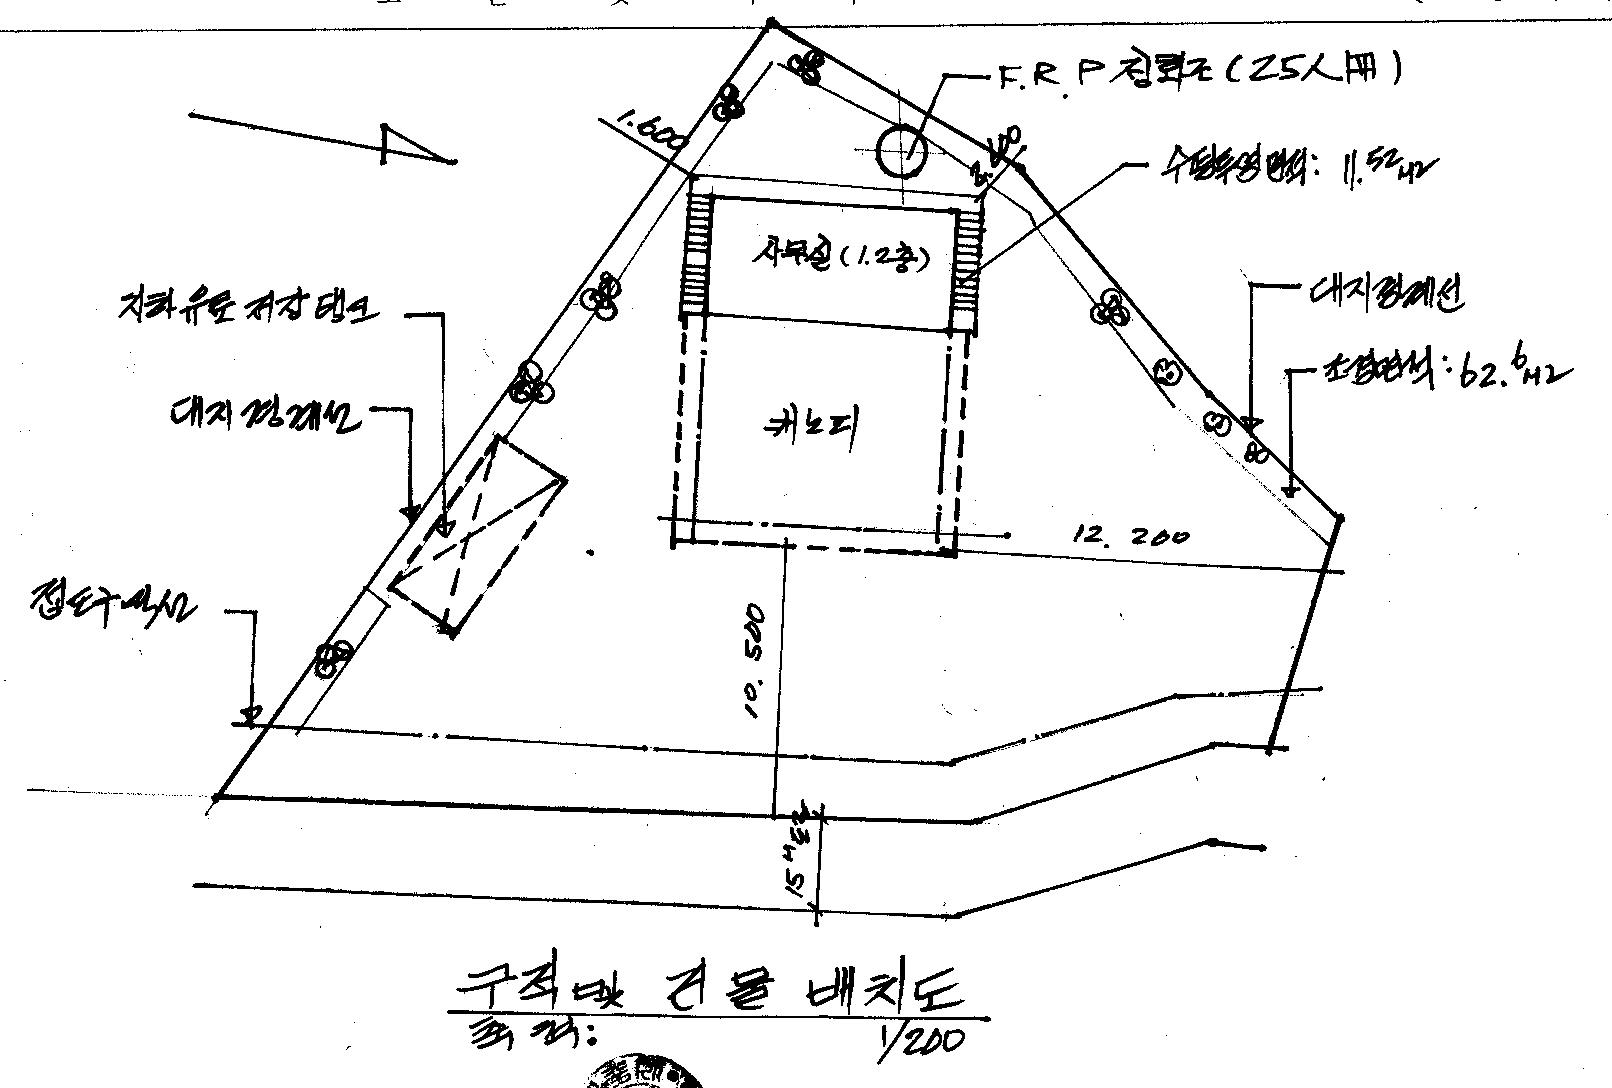 F.R.P 정화조 (25人用)
1.600
수평투영면적: 11.52M2
사무실 (1.2층)
대지경계선
지하유류 저장탱크
조경면적: 62.6M2
대지경계선
캐노피
12.200
접도구역선
10.500
15M도로
구적 및 건물 배치도
축척: 1/200